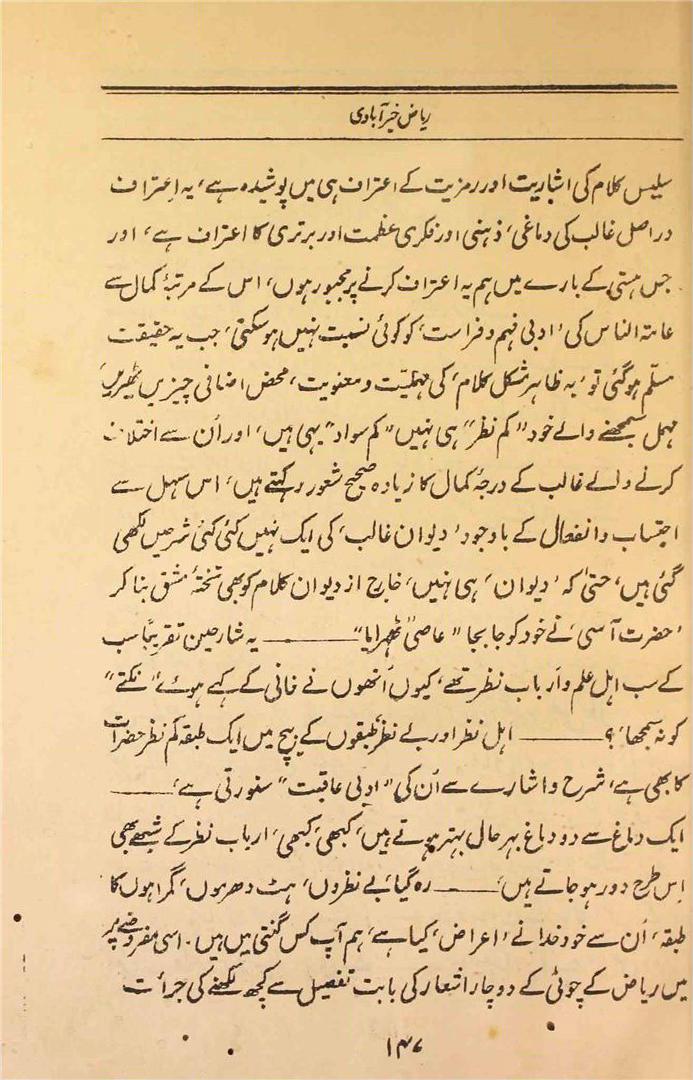 ریاض خیرآبادی
سلیس کلام کی اشاریت اور رمزیت کے اعتراف ہی میں پوشیدہ ہے، یہ اِعتراف
دراصل غالب کی دماغی، ذہنی اور فکری عظمت اور برتری کا اعتراف ہے، اور
جس ہستی کے بارے میں ہم یہ اعتراف کرنے پر مجبور ہوں، اس کے مرتبۂ کمال سے
عامتہ الناس کی ’ادبی فہم و فراست‘ کو کوئی نسبت نہیں ہوسکتی، جب یہ حقیقت
مسلّم ہوگئی تو ’بہ ظاہر مشکل کلام‘ کی مہملیّت و معنویت، محض اضافی چیزیں ٹھیریں،
مہمل سمجھنے والے خود ”کم نظر“ ہی نہیں ”کم سواد“ بھی ہیں، اور اُن سے اختلاف
کرنے والے غالب کے درجۂ کمال کا زیادہ صحیح شعور رکھتے ہیں، اس سہل سے
اجتساب وانفصال کے باوجود ’دیوان غالب‘ کی ایک نہیں کئی کئی شرحیں لکھی
گئی ہیں، حتیٰ کہ ’دیوان‘ ہی نہیں، خارج از دیوان کلام کو بھی تختۂ مشق بنا کر
’حضرت آسی‘ نے خود کو جابجا ”عاصی ٹھہرایا“ ——— یہ شارحین تقریباً سب
کے سب اہل علم و ارباب نظر تھے، کیوں اُنھوں نے فانی کے کہے ہوئے ”نکتے“
کو نہ سمجھا، ؟ ——— اہل نظر اور بے نظر طبقوں کے بیچ میں ایک طبقہ کم نظر حضرات
کا بھی ہے، شرح و اشارے سے اُن کی ”ادبی عاقبت“ سنورتی ہے، ———
ایک دماغ سے دو دماغ بہر حال بہتر ہوتے ہیں، کبھی، کبھی، ارباب نظر کے شبہے بھی
اِس طرح دور ہو جاتے ہیں، ——— رہ گیا، بے نظروں، ہٹ دھرموں، گمراہوں کا
طبقہ، اُن سے خود خدا نے ’اعراض‘ کیا ہے، ہم آپ کس گنتی میں ہیں۔ اسی مفروضے پر
میں ریاض کے چوٹی کے دوچار اشعار کی بابت تفصیل سے کچھ لکھنے کی جرأت
۱۴۷